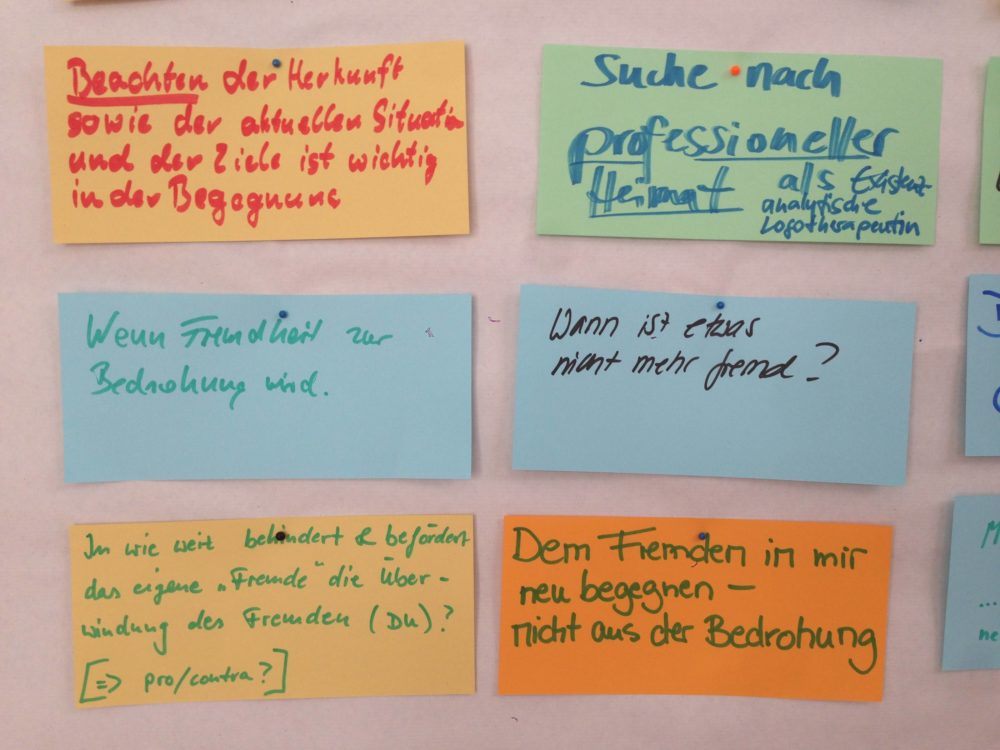 Beachten der Herkunft
sowie der aktuellen Situation
und der Ziele ist wichtig
in der Begegnung
Suche nach
professioneller
Heimat als Existenz-
analytische
Logotherapeutin
Wenn Fremdheit zur
Bedrohung wird.
Wann ist etwas
nicht mehr fremd?
In wie weit behindert & befördert
das eigene „Fremde“ die Über-
windung des Fremden (Du)?
[=> pro/contra?]
Dem Fremden in mir
neu begegnen –
nicht aus der Bedrohung